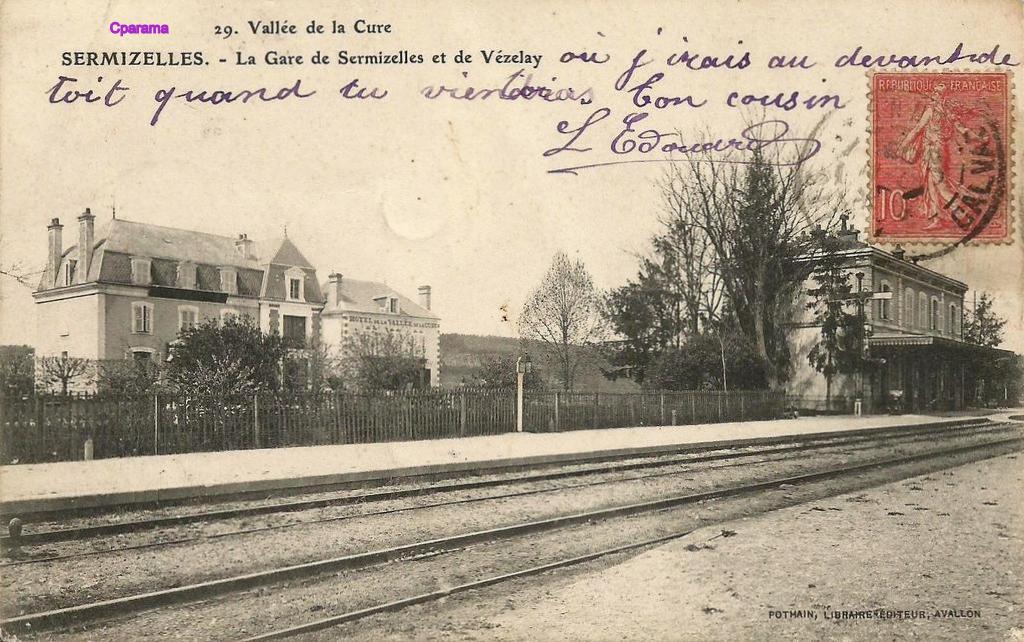 Cparama
29. Vallée de la Cure
SERMIZELLES. - La Gare de Sermizelles et de Vézelay
où j'irais au devant de
toit quand tu viendrais ton cousin
L Edouard
REPUBLIQUE FRANÇAISE
10
CALVAD
HOTEL DE LA VALLEE DE LA CURE
POTHAIN, LIBRAIRE-ÉDITEUR, AVALLON